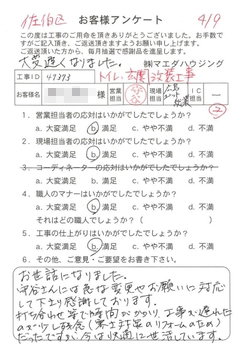 佐伯区 お客様アンケート 4/9
この度は工事のご用命を頂きありがとうございました。お手数で
すがご記入頂き、ご返送頂きますようお願い申し上げます。
ご返送頂いた方から、毎月抽選で感謝品を進呈します。
大変遅くなりました。 ㈱マエダハウジング
工事ID 47393 トイレ、玄関改装工事
お客様名 様 営業担当 現場担当
1．営業担当者の応対はいかがでしたでしょうか？
a. 大変満足 b. 満足 c. やや不満 d. 不満
2．現場担当者の応対はいかがでしたでしょうか？
a. 大変満足 b. 満足 c. やや不満 d. 不満
3．コーディネーターの応対はいかがでしたでしょうか？
a. 大変満足 b. 満足 c. やや不満 d. 不満
4．職人のマナーはいかがでしたでしょうか？
a. 大変満足 b. 満足 c. やや不満 d. 不満
それはどの職人でしょうか？( )
5．工事の仕上がりはいかがでしたでしょうか？
a. 大変満足 b. 満足 c. やや不満 d. 不満
6．その他、ご意見・ご要望をお書き下さい。
お世話になりました。
守谷さんには急な変更やお願いに対応
して下さり感謝しております。
打ち合わせ等で時間がかかり、工事が遅れた
のが少し残念（寒さ対策のリフォームのため）
だったですが、今は快適に生活しています。